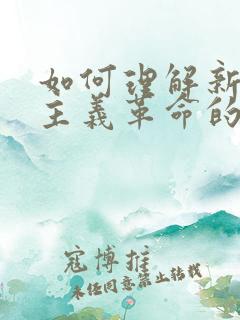 如何理解新
主义革命的
寇博推
未经同意禁止转载